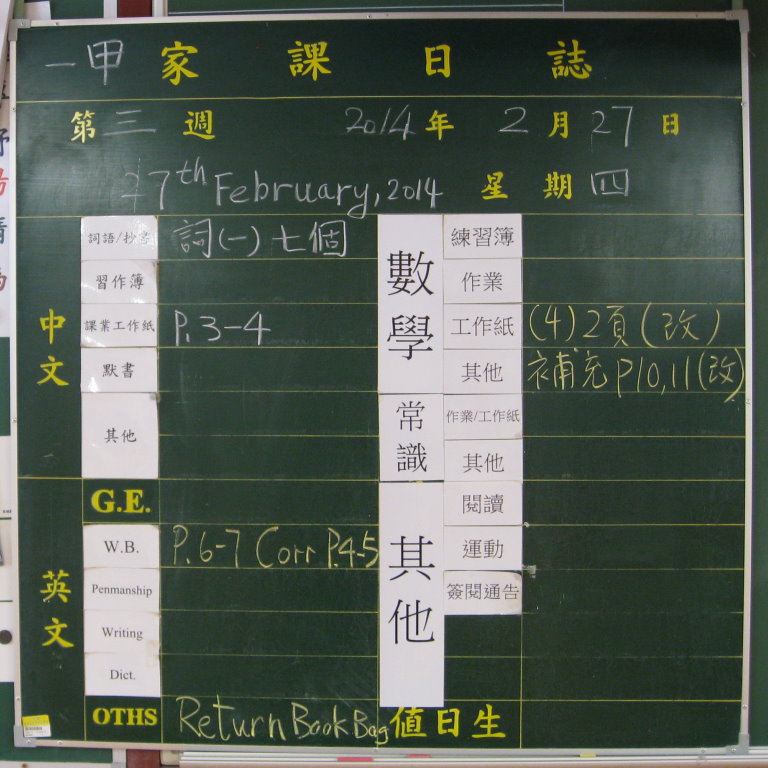 一甲 家課日誌
第三週 2014年2月27日
27th February, 2014 星期四
中文
詞語/抄書 詞(一)七個
習作簿
課業工作紙 P.3-4
默書
其他
英文
G.E.
W.B. P.6-7 Corr P.4-5
Penmanship
Writing
Dict.
OTHS Return Book Bag
數學
練習簿
作業
工作紙 (4)2頁(改)
其他 補充P10,11(改)
常識
作業/工作紙
其他
其他
閱讀
運動
簽閱通告
值日生